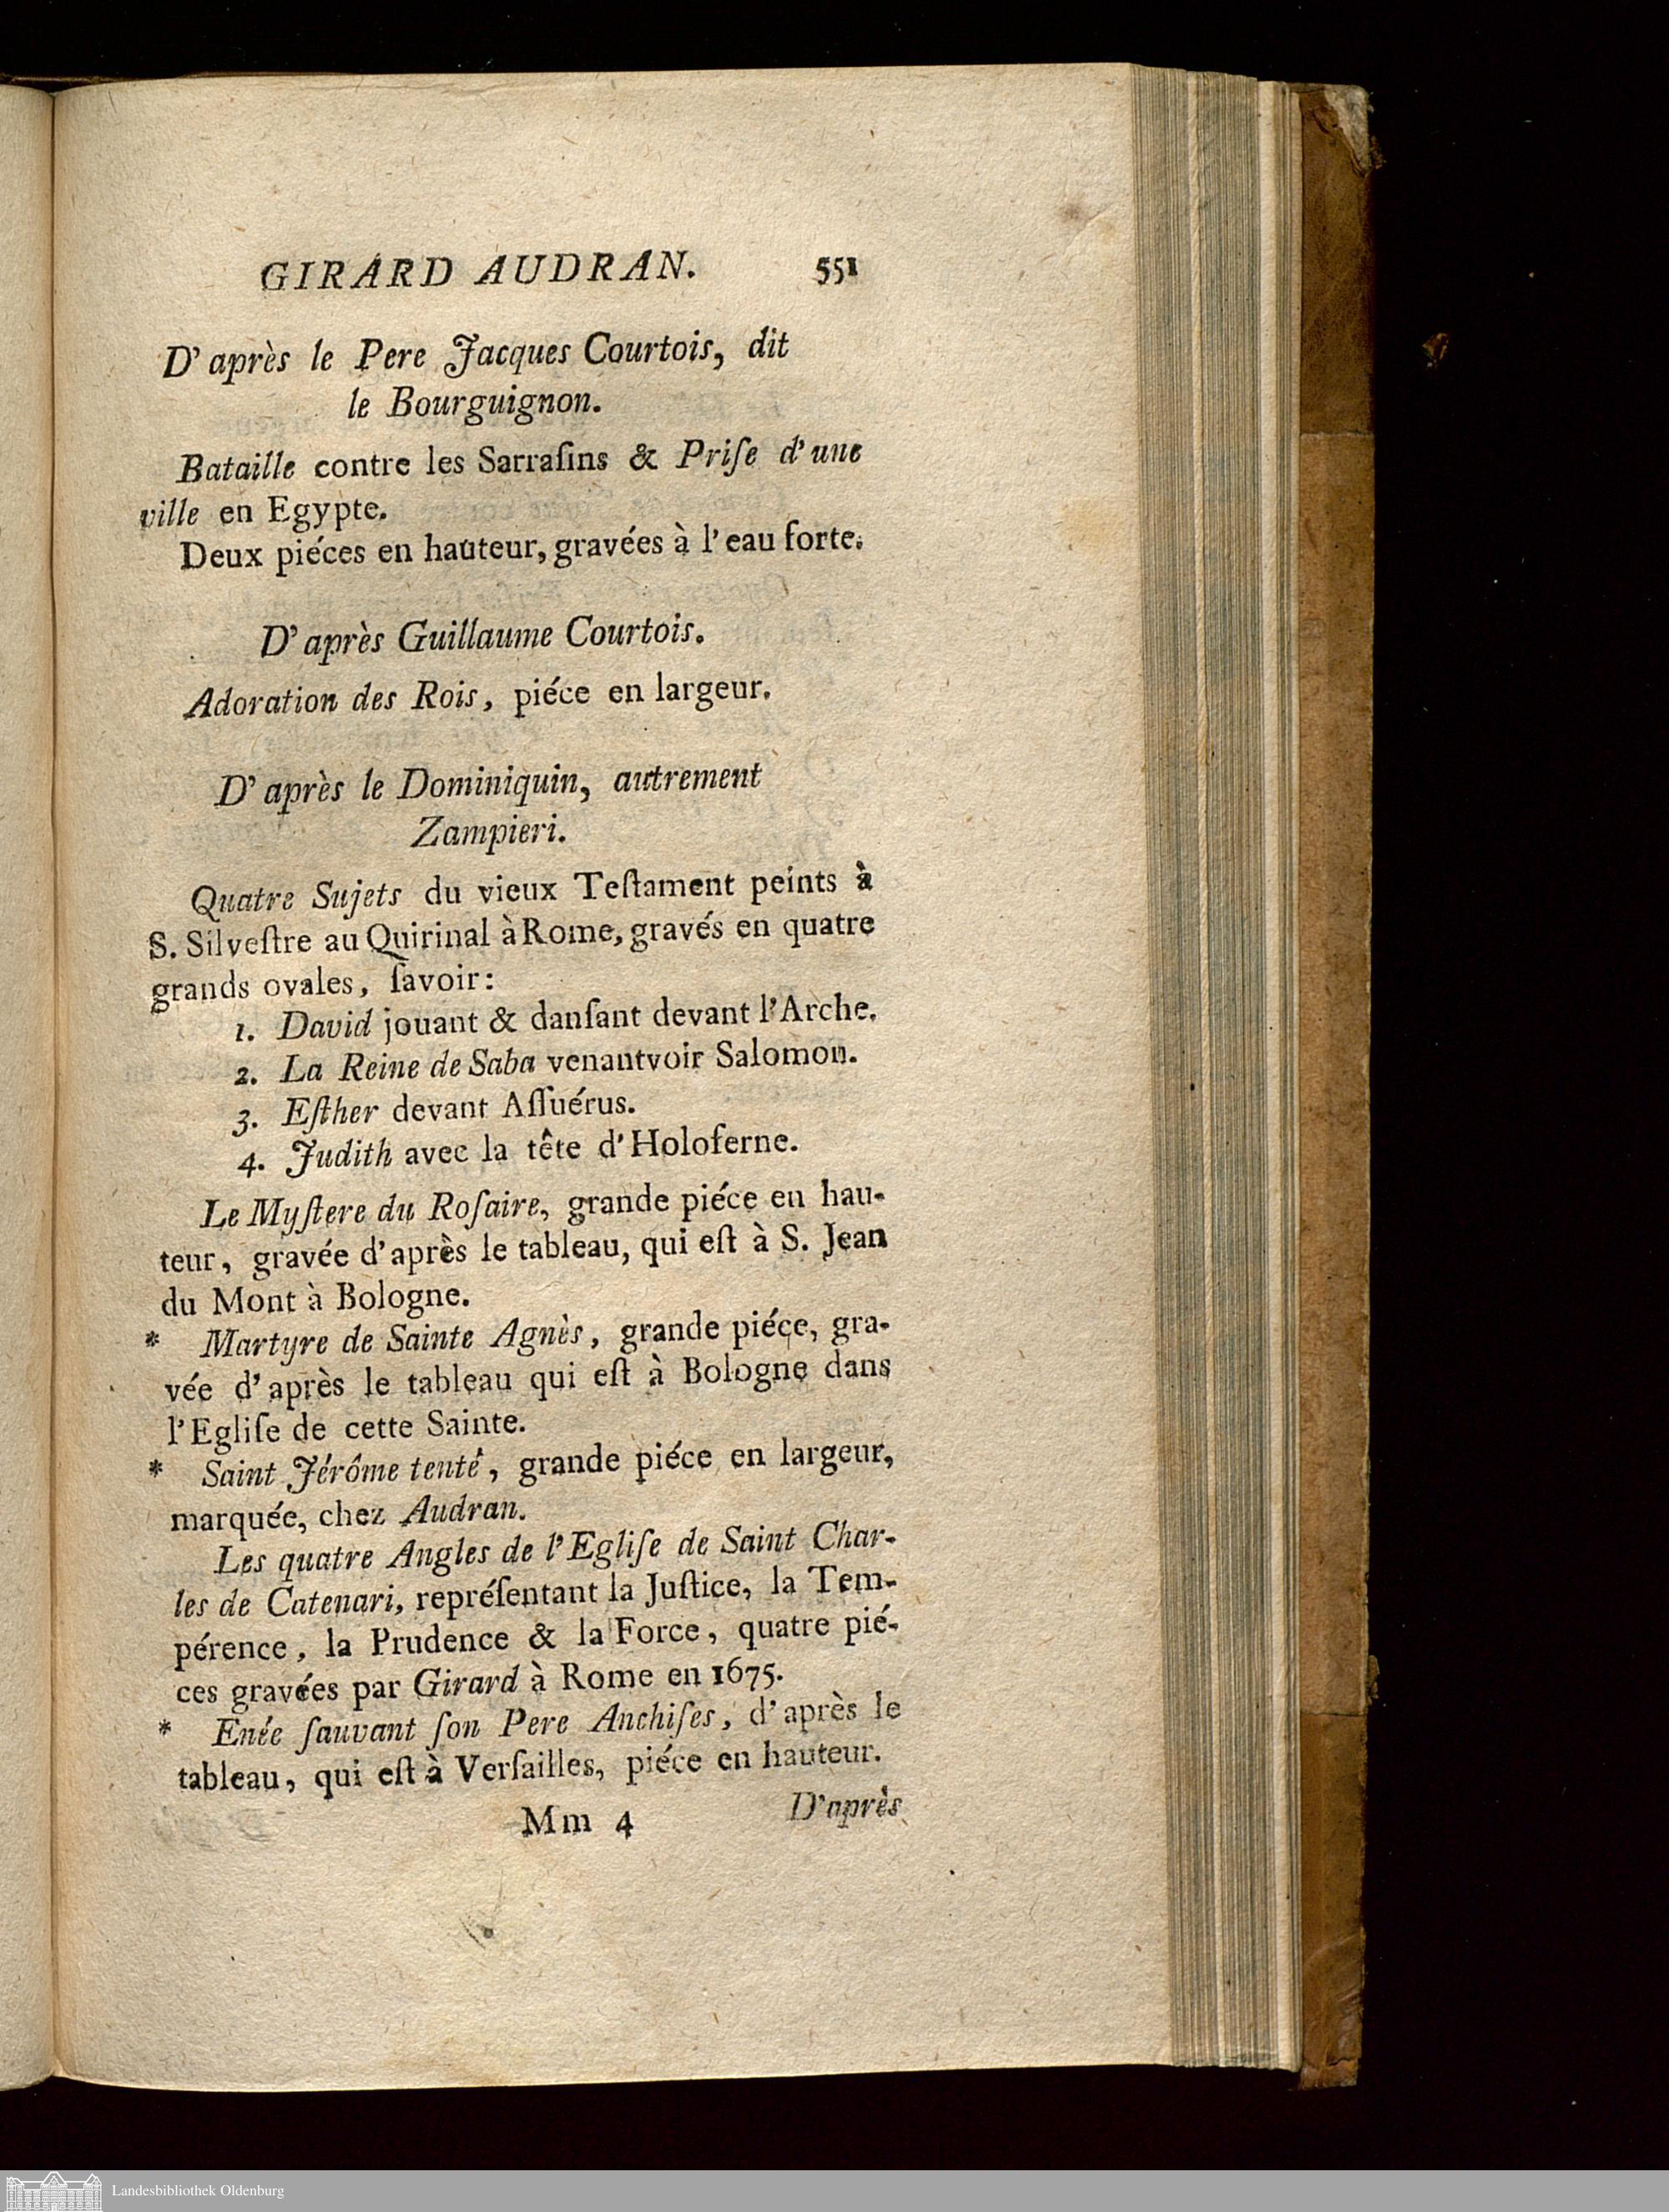 GIRARD AUDRAN. 551
D'après le Pere Jacques Courtois, dit
le Bourguignon.
Bataille contre les Sarraſins & Priſe d'une
ville en Egypte.
Deux piéces en hauteur, gravées à l'eau forte.
D'après Guillaume Courtois.
Adoration des Rois, piéce en largeur.
D'après le Dominiquin, autrement
Zampieri.
Quatre Sujets du vieux Teſtament peints à
S. Silveſtre au Quirinal à Rome, gravés en quatre
grands ovales, ſavoir:
1. David jouant & danſant devant l'Arche.
2. La Reine de Saba venantvoir Salomon.
3. Eſther devant Aſſuérus.
4. Judith avec la tête d'Holoferne.
Le Myſtere du Roſaire, grande piéce en hau-
teur, gravée d'après le tableau, qui eſt à S. Jean
du Mont à Bologne.
* Martyre de Sainte Agnès, grande piéce, gra-
vée d'après le tableau qui eſt à Bologne dans
l'Egliſe de cette Sainte.
* Saint Jérôme tenté, grande piéce en largeur,
marquée, chez Audran.
Les quatre Angles de l'Egliſe de Saint Char-
les de Catenari, repréſentant la Juſtice, la Tem-
pérence, la Prudence & la Force, quatre pié-
ces gravées par Girard à Rome en 1675.
* Enée ſauvant ſon Pere Anchiſes, d'après le
tableau, qui eſt à Verſailles, piéce en hauteur.
Mm 4 D'après
Landesbibliothek Oldenburg